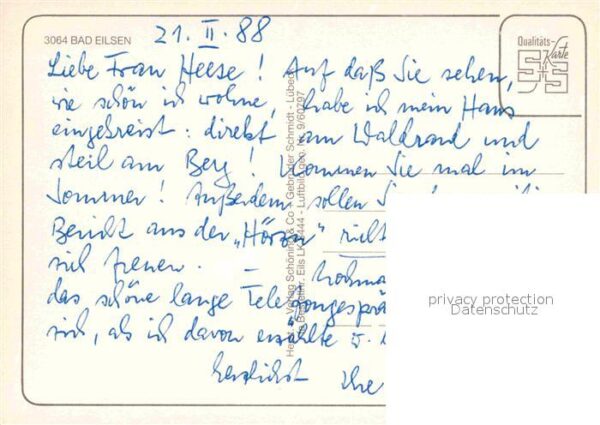 3064 BAD EILSEN
21. II. 88
Qualitäts-Karte
Liebe Frau Heese! Auf daß Sie sehen,
wie schön ich wohne, habe ich mein Haus
eingekreist: direkt am Waldrand und
steil am Berg! Kommen Sie mal im
Sommer! Außerdem sollen Sie
Bericht aus der „Hörzu"
sich freuen. – Nochma
das schöne lange Telefongesprä
sich, als ich davon erzählte u.
herzlichst Ihre
Verlag Schöning & Co + Gebrüder Schmidt - Lübeck
Luftbild geo. Nr. 9/60797
privacy protection
Datenschutz